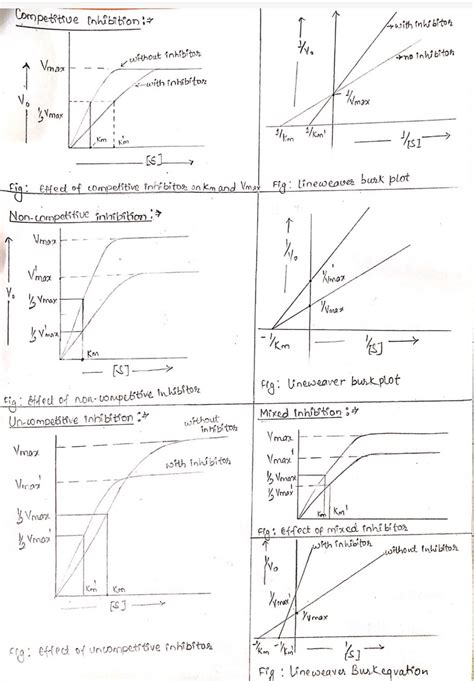 Competitive inhibition :→
Vmax
without inhibitor
with inhibitor
V₀
½Vmax
Km
Km'
[S]
Fig: Effect of competitive inhibitor on Km and Vmax
1/V₀
with inhibitor
no inhibitor
1/Vmax
1/Km
1/Km'
1/[S]
Fig: Lineweaver burk plot
Non-competitive inhibition :→
Vmax
V'max
V₀
½ Vmax
½ V'max
Km
[S]
Fig: Effect of non-competitive Inhibitor
1/V₀
1/V'max
1/Vmax
-1/Km
1/[S]
Fig: Lineweaver burk plot
Un-competitive inhibition :→
without
inhibitor
Vmax
with inhibitor
Vmax'
½ Vmax
½ Vmax'
Km'
Km
[S]
Fig: Effect of uncompetitive inhibitor
Mixed inhibition :→
Vmax
Vmax'
½ Vmax
½ Vmax'
Km
Km'
Fig: Effect of mixed inhibitor
with inhibitor
1/V₀
without Inhibitor
1/Vmax'
1/Vmax
-1/Km
-1/Km'
1/[S]
Fig: Lineweaver Burk equation